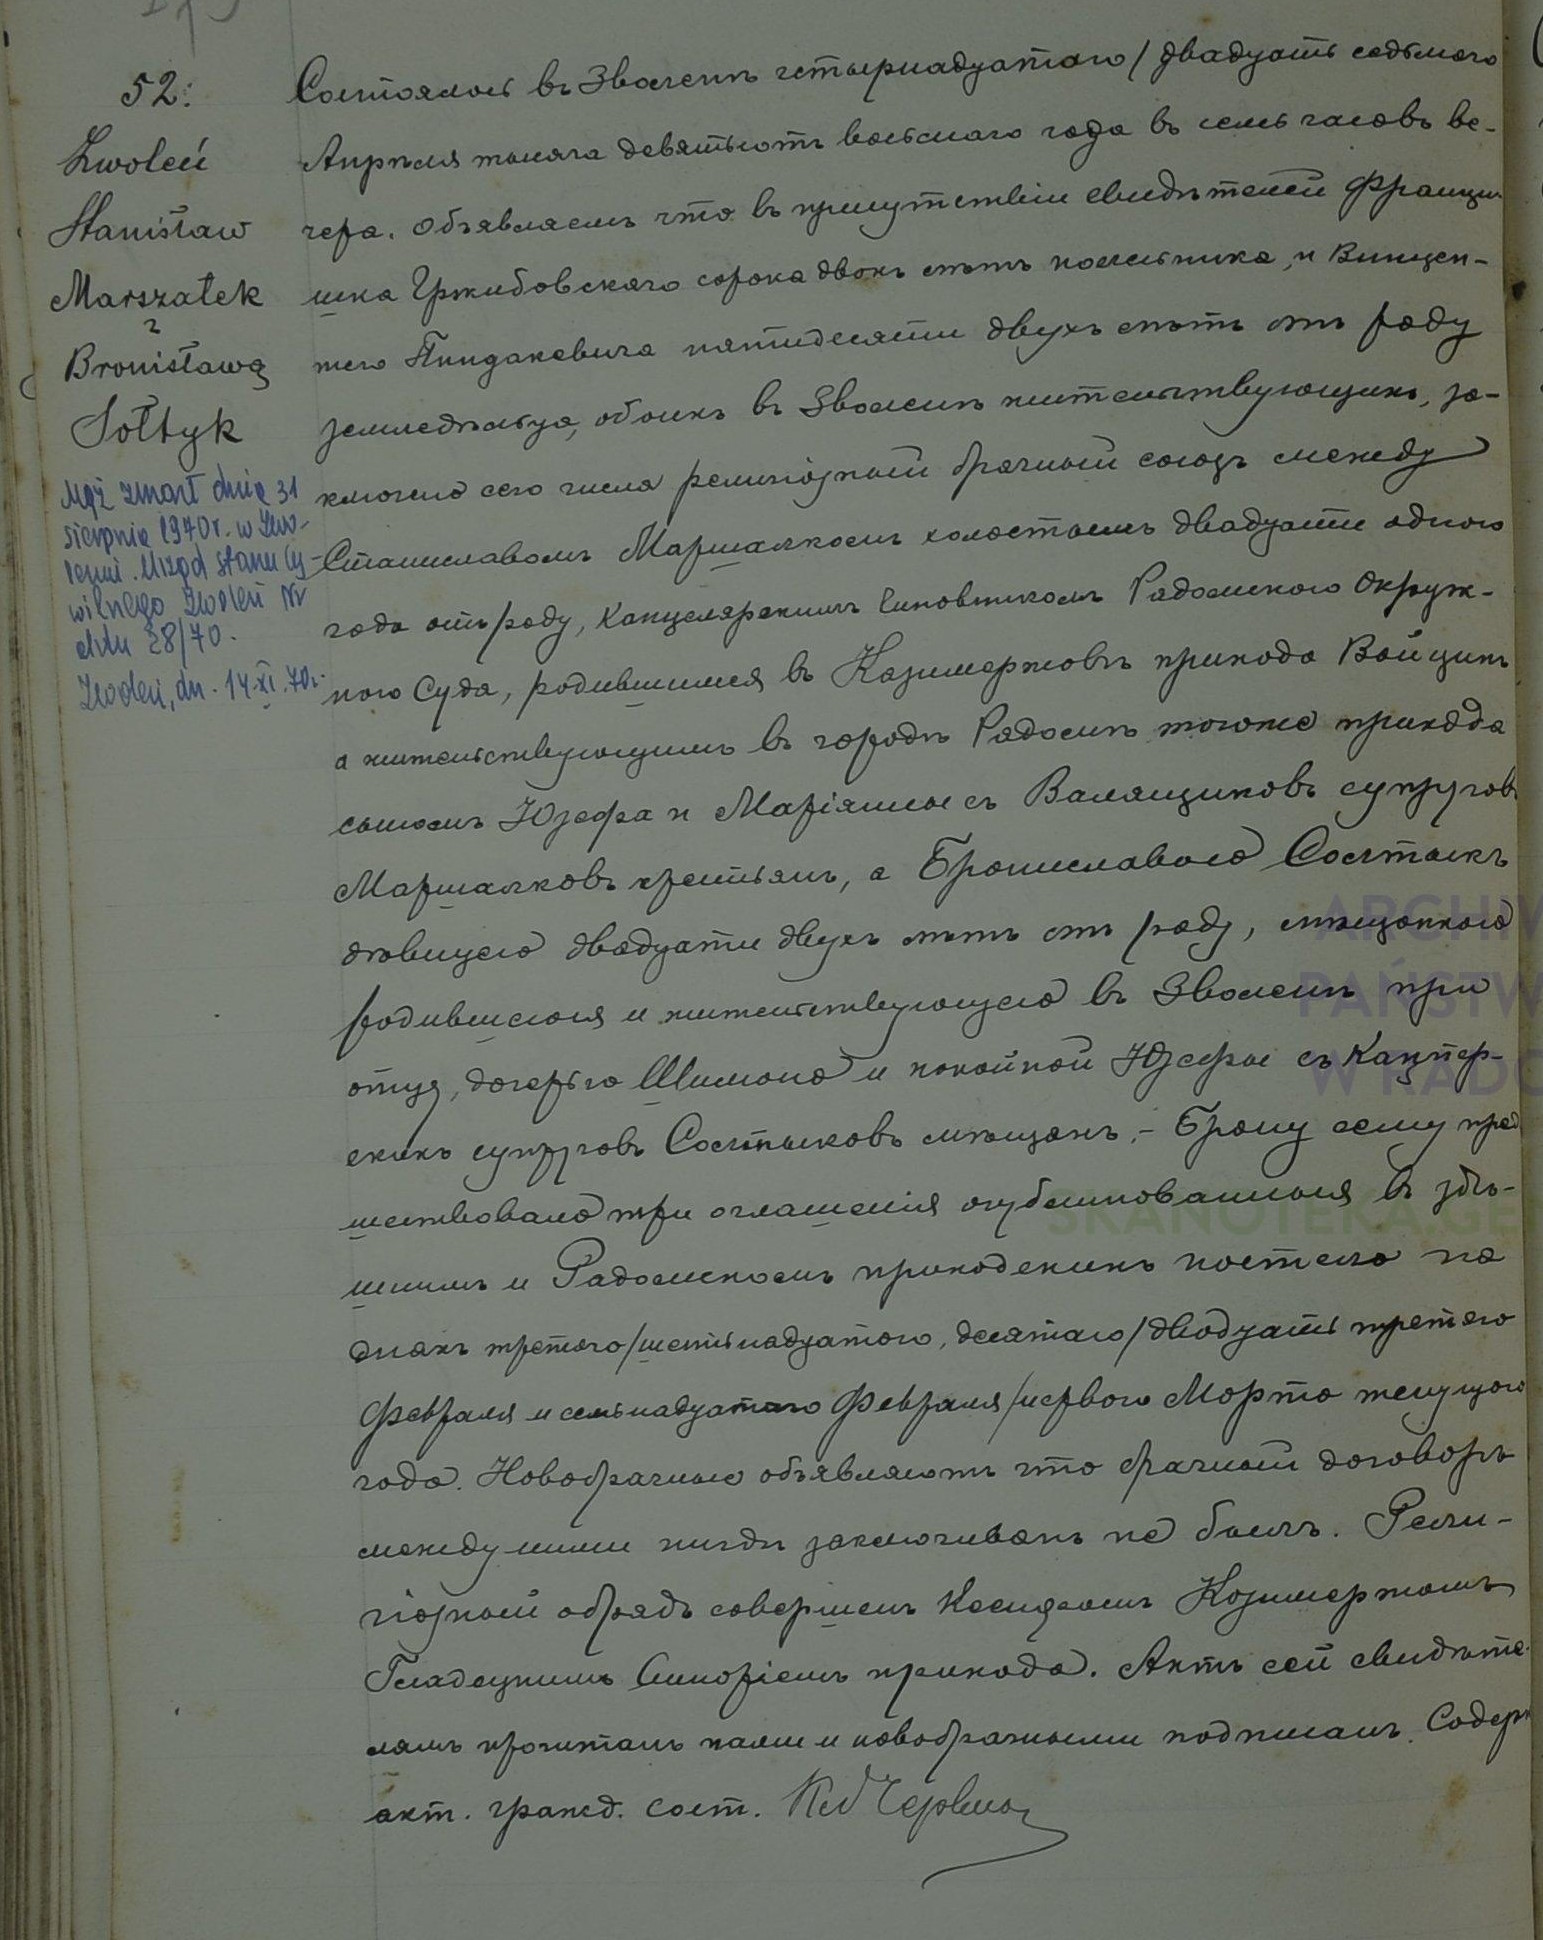 52.
Zwoleń
Stanisław
Marszałek
z
Bronisławą
Sołtyk
Mąż zmarł dnia 31
sierpnia 1970 r. w Zwo-
leniu. Urząd Stanu Cy-
wilnego Zwoleń Nr
aktu 28/70.
Zwoleń, dn. 14.XI.70 r.
Состоялось въ Зволенѣ четырнадцатаго / двадцать седьмого
Апрѣля тысяча девятьсотъ восьмаго года въ семь часовъ ве-
чера. Объявляемъ что въ присутствіи свидѣтелей Францы-
шка Гржибовскаго сорока двохъ лѣтъ помѣстника, и Винцен-
таго Пиндакевича пятидесяти двухъ лѣтъ отъ роду
земледѣльца, обоихъ въ Зволенѣ жительствующихъ, за-
ключенъ сего числа религіозный брачный союзъ между
Станиславомъ Маршалкомъ холостымъ двадцати одного
года отъ роду, Канцелярскимъ Чиновникомъ Радомскаго Окруж-
ного Суда, родившимся въ Казимержовѣ прихода Войцинъ
а жительствующимъ въ городѣ Радомѣ тогоже прихода
сыномъ Юзефа и Маріянны съ Валящиковъ супруговъ
Маршалковъ крестьянъ, а Брониславою Солтыкъ
дѣвицею двадцати двухъ лѣтъ отъ роду, мѣщанкою
родившеюся и жительствующею въ Зволенѣ при
отцѣ, дочерью Шимона и покойной Юзефы съ Кацпер-
скихъ супруговъ Солтыковъ мѣщанъ. - Браку сему пред
шествовало три оглашенія опубликованныя въ здѣ-
шнимъ и Радомскомъ приходскихъ костела по
дняхъ третяго / шестьнадцатого, десятаго / двадцать третяго
Февраля и семьнадцатаго Февраля / перваго Марта текущаго
года. Новобрачные объявляютъ что брачный договоръ
между ними нигдѣ заключиванъ не былъ. Рели-
гіозный обрядъ совершенъ Ксендзомъ Казимержомъ
Гладецкимъ Викаріемъ прихода. Актъ сей свидѣте-
лямъ прочитанъ нами и новобрачными подписанъ. Содерж
акт. гражд. сост.
ARCHIW
PAŃSTW
W RADO
SKANOTEKA.GE